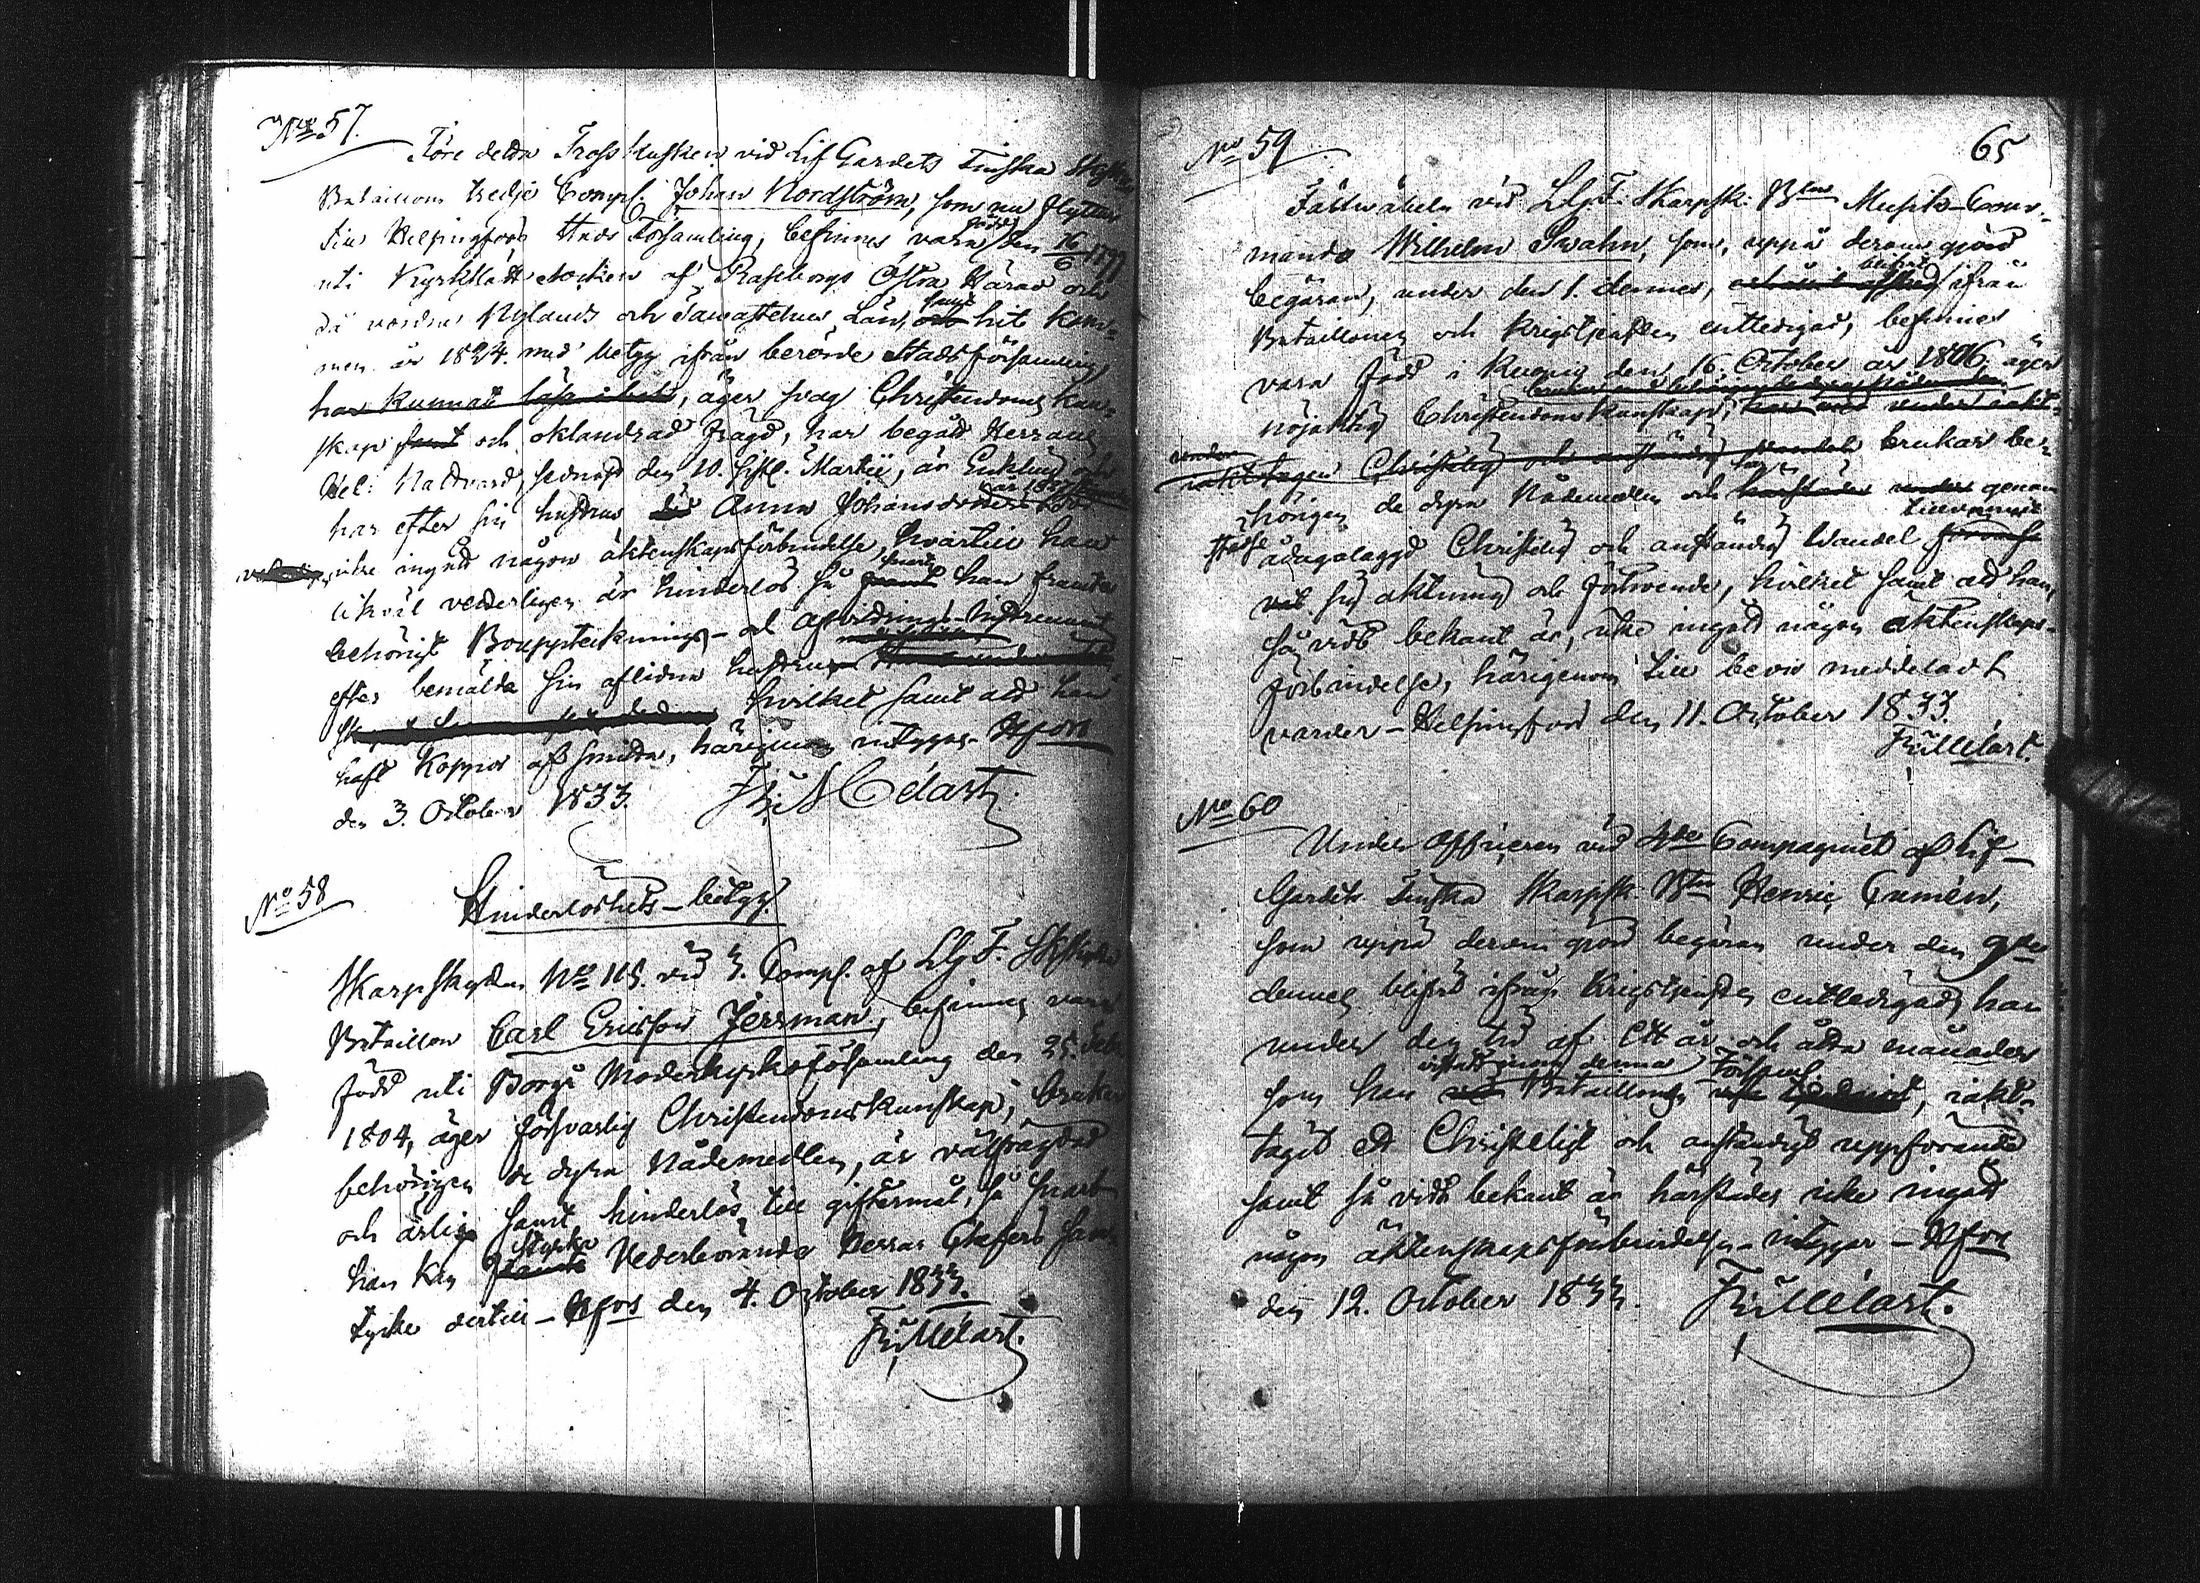 No 57.
Före detta Tross Kusken vid Lif Gardets Finska Skskytte
Bataillons tredje Comp. Johan Nordström, som nu flyttar
till Helsingfors Stads Församling, befinnes vara född den 16/6 1797
uti Kyrkslätt Socken af Raseborgs Östra Härad och
då varande Nylands och Tavastehus Län, samt hit kom-
men år 1824 med betyg ifrån berörde Stadsförsamling,
har kunnat läsa i bok, äger svag Christendoms kun-
skap samt och oklandrad frägd, har begått Herrans
Hel. Nattvard, sednast den 10. sistl. Martii, är Enkling och
har efter sin hustrus Anna Johansdotters död
icke ingått någon äktenskapsförbindelse, hvartill han
likväl vederligen är hinderlös så snart han framter
behörigt Bouppteckning- och afvittrings-Instrument
efter bemälda sin aflidna hustru
hvilket samt att han
haft Koppor af smitta, härigenom intygas. Hfors
den 3. October 1833. Fr. Mélart.
No 58
Hinderlöshets-betyg.
Skarpskytten No 115. vid 3. Comp. af L.G. F. Skskytte
Bataillon Carl Ericsson Jerrman, befinnes vara
född uti Borgå Moderkyrkoförsamling den 25. Feb.
1804, äger försvarlig Christendomskunskap, brukar
behörigen de dyra Nådemedlen, är välfrägdad
och ärlig samt hinderlös till giftermål, så snart
han kan styrka Vederbörande Herrar Chefers sam-
tycke dertill – Hfors den 4. October 1833.
Fr. Mélart.
65
No 59
Fältväbeln vid L.G. F. Skarpsk. Btns Musik-Com-
mando Wilhelm Swahn, som, uppå derom gjord
begäran, under den 1. dennes, blifvit ifrån
Bataillonen och Krigstjensten entledigad, befinnes
vara född i Runnig den 16. October år 1806, äger
nöjaktig Christendomskunskap, brukar be-
hörigen de dyra Nådemedlen och har genom
ådagalaggd Christelig och anständig Vandel tillvunnit
sig aktning och förtroende, hvilket samt att han,
så vidt bekant är, icke ingått någon äktenskaps-
förbindelse, härigenom till bevis meddeladt
varder – Helsingfors den 11. October 1833.
Fr. Mélart.
No 60
Under Officeren vid 4de Compagniet af Lif-
Gardets Finska Skarpsk. Btn Henric Gumén,
som uppå derom gjord begäran under den 9de
dennes blifvit ifrån Krigstjensten entledigad, har
under den tid af Ett år och åtta månader
som han vistats inom denna Bataillons Församl., iakt-
tagit ett Christeligt och anständigt uppförande
samt så vidt bekant är härstädes icke ingått
någon äktenskapsförbindelse – intygar – Hfors
den 12. October 1833. Fr. Mélart.